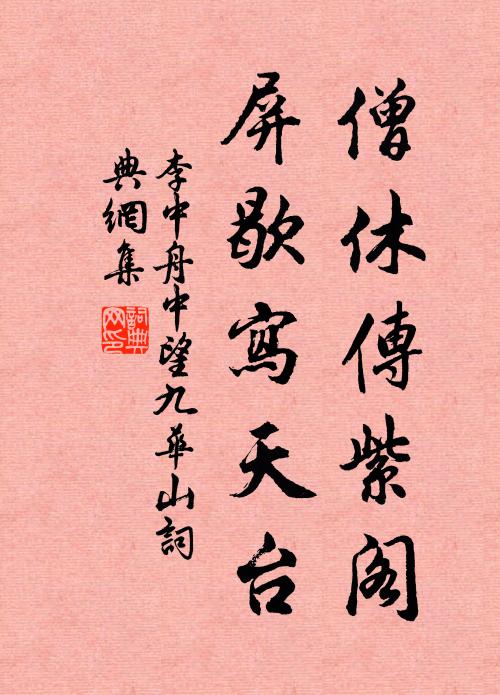 僧休傳紫閣
屏歇寫天台
李中舟中望九華山詞
典網集
詞典網印